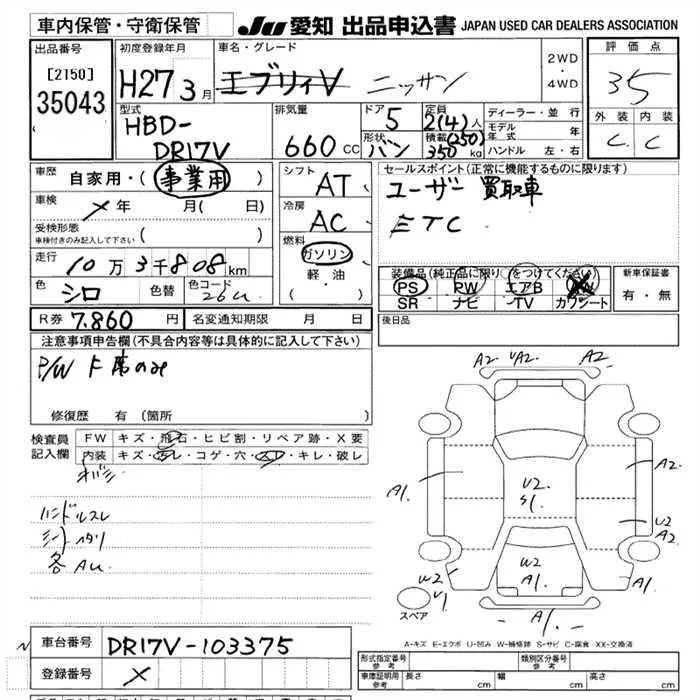 車内保管・守衛保管
JU 愛知 出品申込書 JAPAN USED CAR DEALERS ASSOCIATION
出品番号
[2150]
35043
初度登録年月
H27 3月
車名・グレード
エブリィV ニッサン
2WD
・
4WD
評価点
3.5
外装 内装
C C
型式
HBD-
DR17V
排気量
660 CC
ドア 5
形状
バン
定員
2(4)人
積載(250)
350 kg
ディーラー・並行
モデル
年式 年
ハンドル 左・右
車歴 自家用・(事業用)
車検 メ 年 月( 日)
受検形態
車検付きのみ記入して下さい ( )
走行 10万3千808km
色 シロ 色替 色コード 26U
シフト
AT
冷房
AC
燃料
ガソリン
・
軽油
( )
セールスポイント(正常に機能するものに限ります)
ユーザー買取車
ETC
装備品(純正品に限り○をつけてください)
PS PW エアB AW
SR ナビ TV カワシート
新車保証書
有・無
R券 7.860円 名変通知期限 月 日
後日品
注意事項申告欄(不具合内容等は具体的に記入して下さい)
P/W F席のみ
修復歴 有(箇所
検査員
記入欄
FW キズ・飛石・ヒビ割・リペア跡・X要
内装 キズ・汚レ・コゲ・穴・スレ・キレ・破レ
ハンドルスレ
シートヘタリ
各AU
A2. UA2. A2.
A1. A2.
U2.
S1.
U2
A2
A1.
W2
A1.
W2
U1
A1.
スペア
A-キズ E-エクボ U-凹み W-補修跡 S-サビ C-腐食 XX-交換済
車台番号 DR17V-103375
登録番号 メ
形式指定番号
参考
類別区分番号
参考
車庫証明用
参考
長さ cm 幅 cm 高さ cm